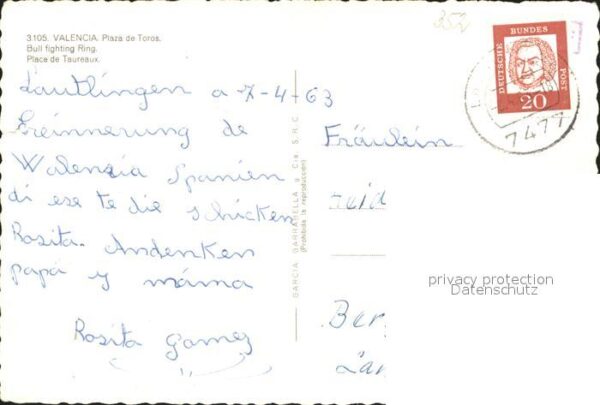 3105. VALENCIA. Plaza de Toros.
Bull fighting Ring.
Place de Taureaux.
252
Lautlingen a 7-4-63
Ereinnerung de
Walenzia Spanien
di ese te die schicken
Rosita. Andenken
papá y máma
Rosita Gomez
GARCIA GARRABELLA y Cia S.R.C
(Prohibida la reproducción)
DEUTSCHE BUNDES POST
20
7477
Fräulein
privacy protection
Datenschutz